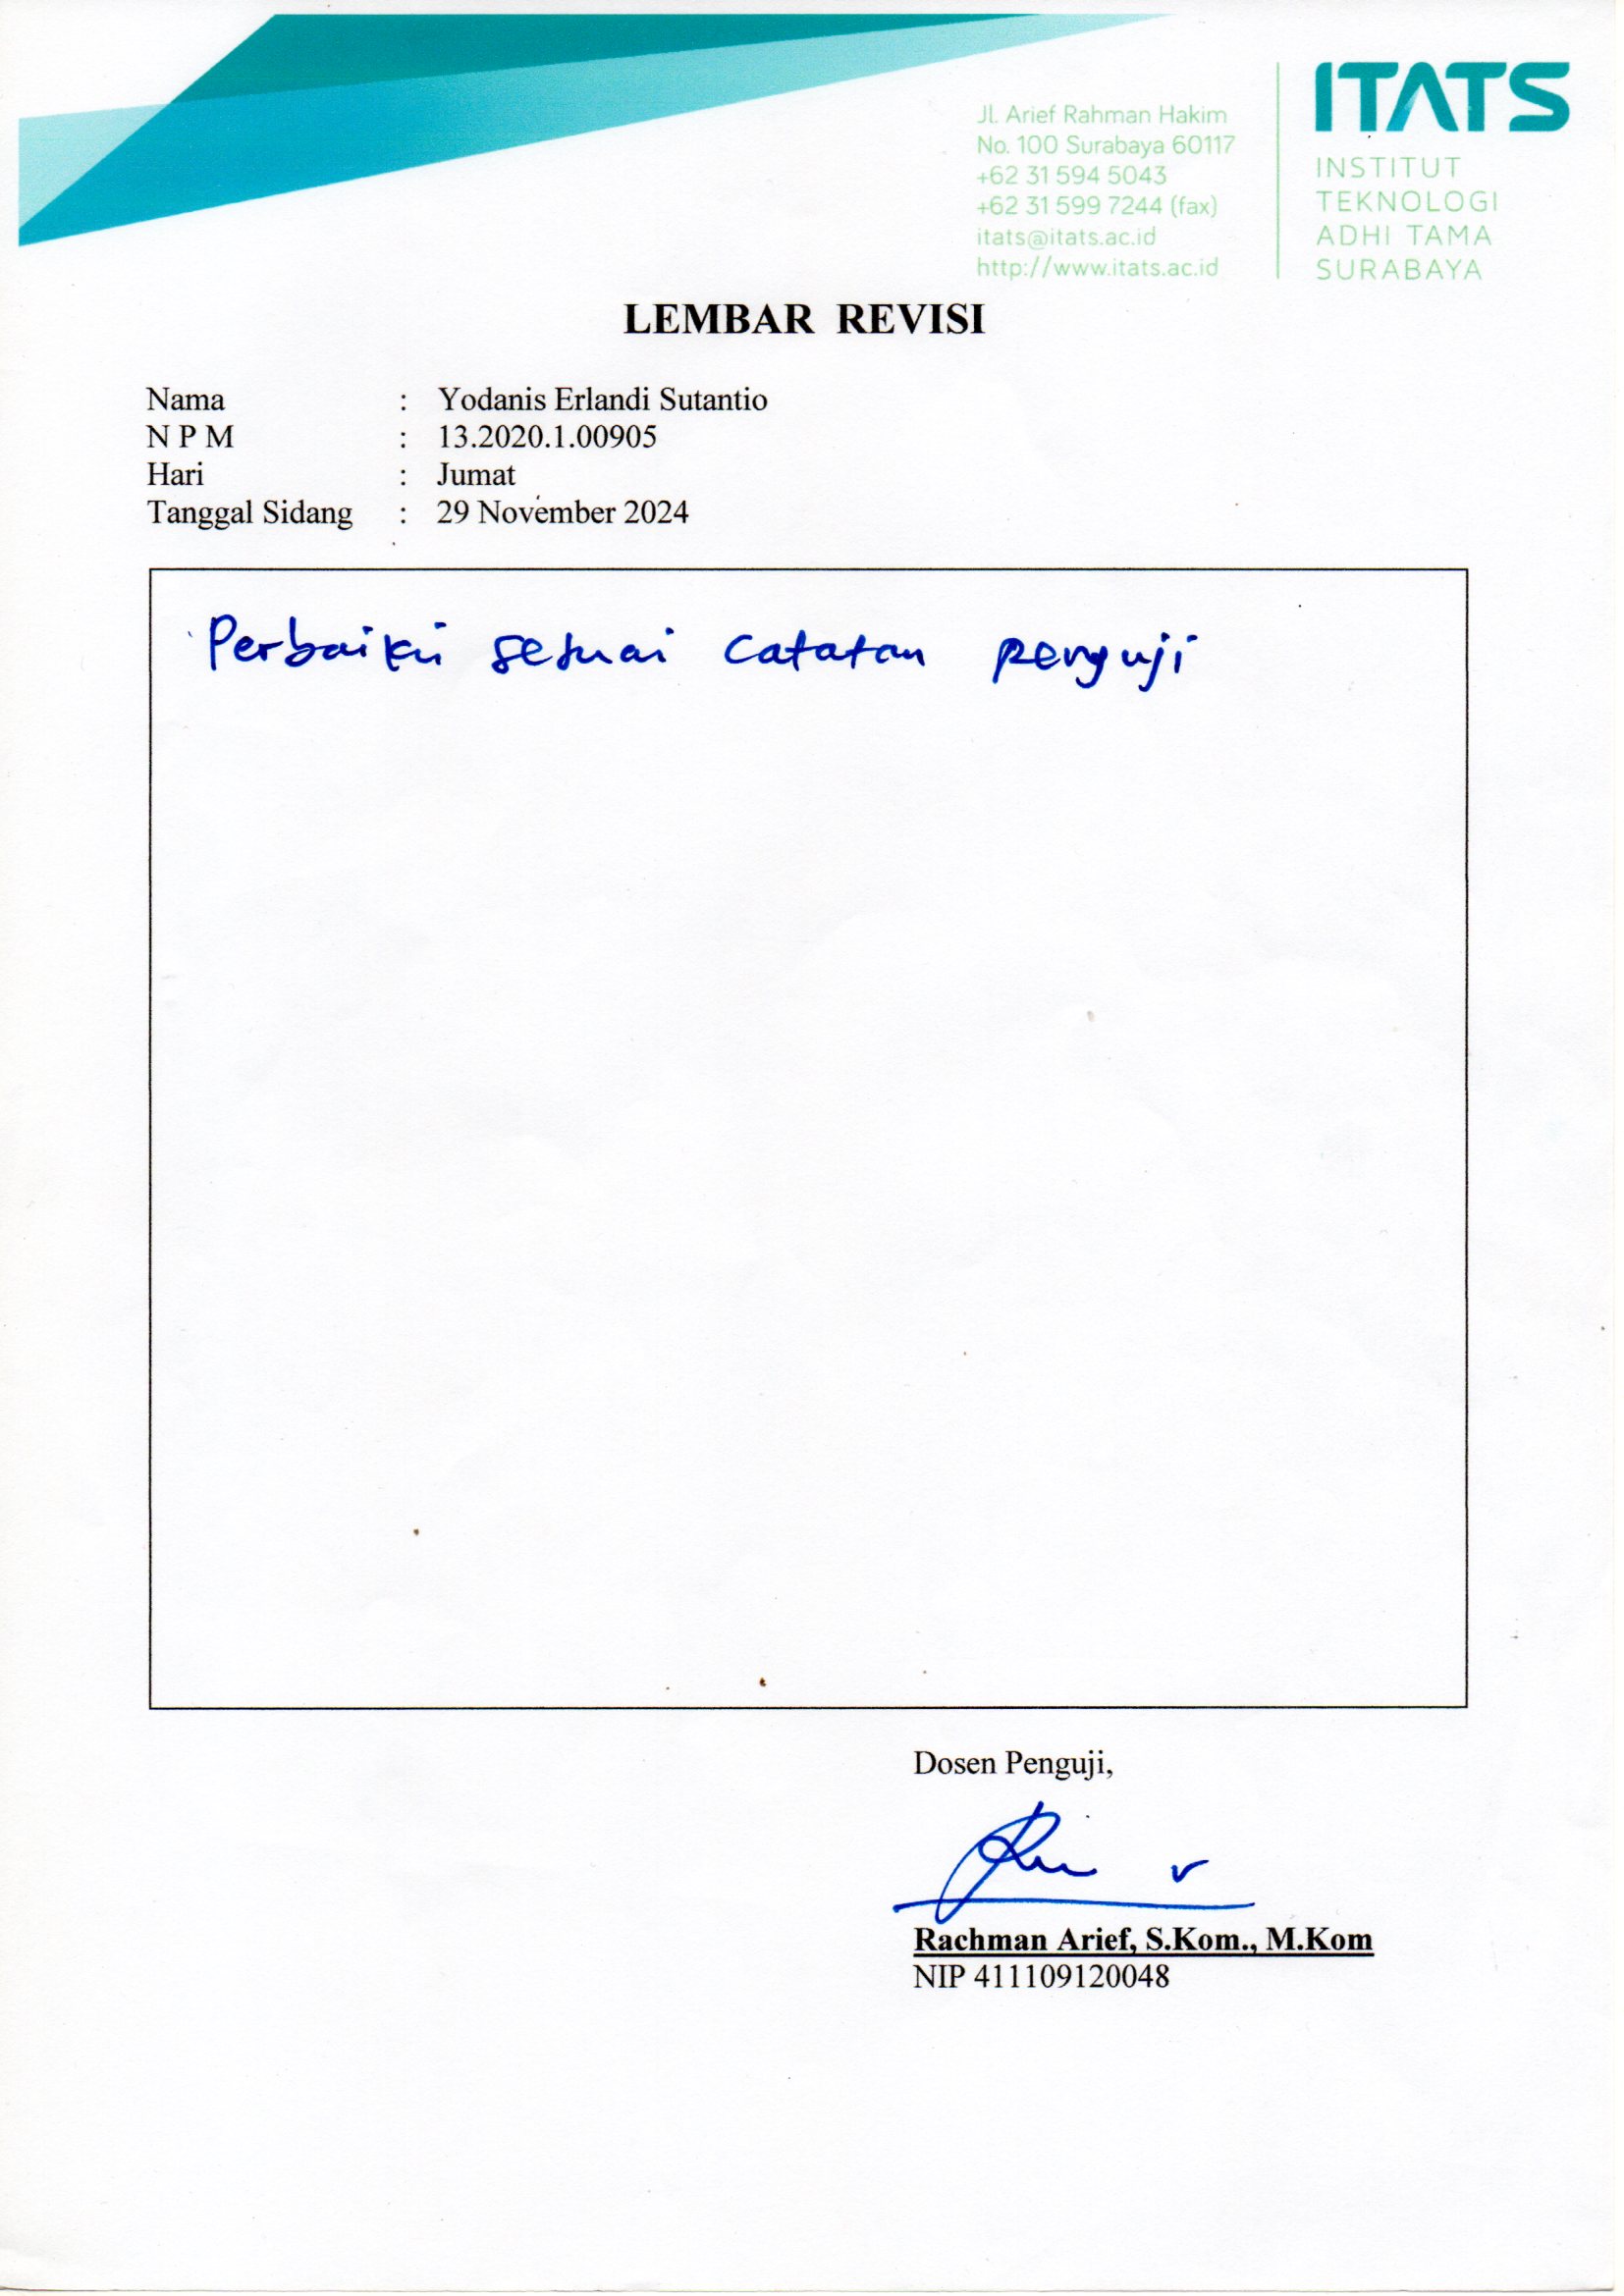 ITATS
Jl. Arief Rahman Hakim
No. 100 Surabaya 60117
+62 31 594 5043
+62 31 599 7244 (fax)
itats@itats.ac.id
http://www.itats.ac.id
INSTITUT
TEKNOLOGI
ADHI TAMA
SURABAYA
LEMBAR REVISI
Nama : Yodanis Erlandi Sutantio
N P M : 13.2020.1.00905
Hari : Jumat
Tanggal Sidang : 29 November 2024
Perbaiki sesuai catatan penguji
Dosen Penguji,
Rachman Arief, S.Kom., M.Kom
NIP 411109120048